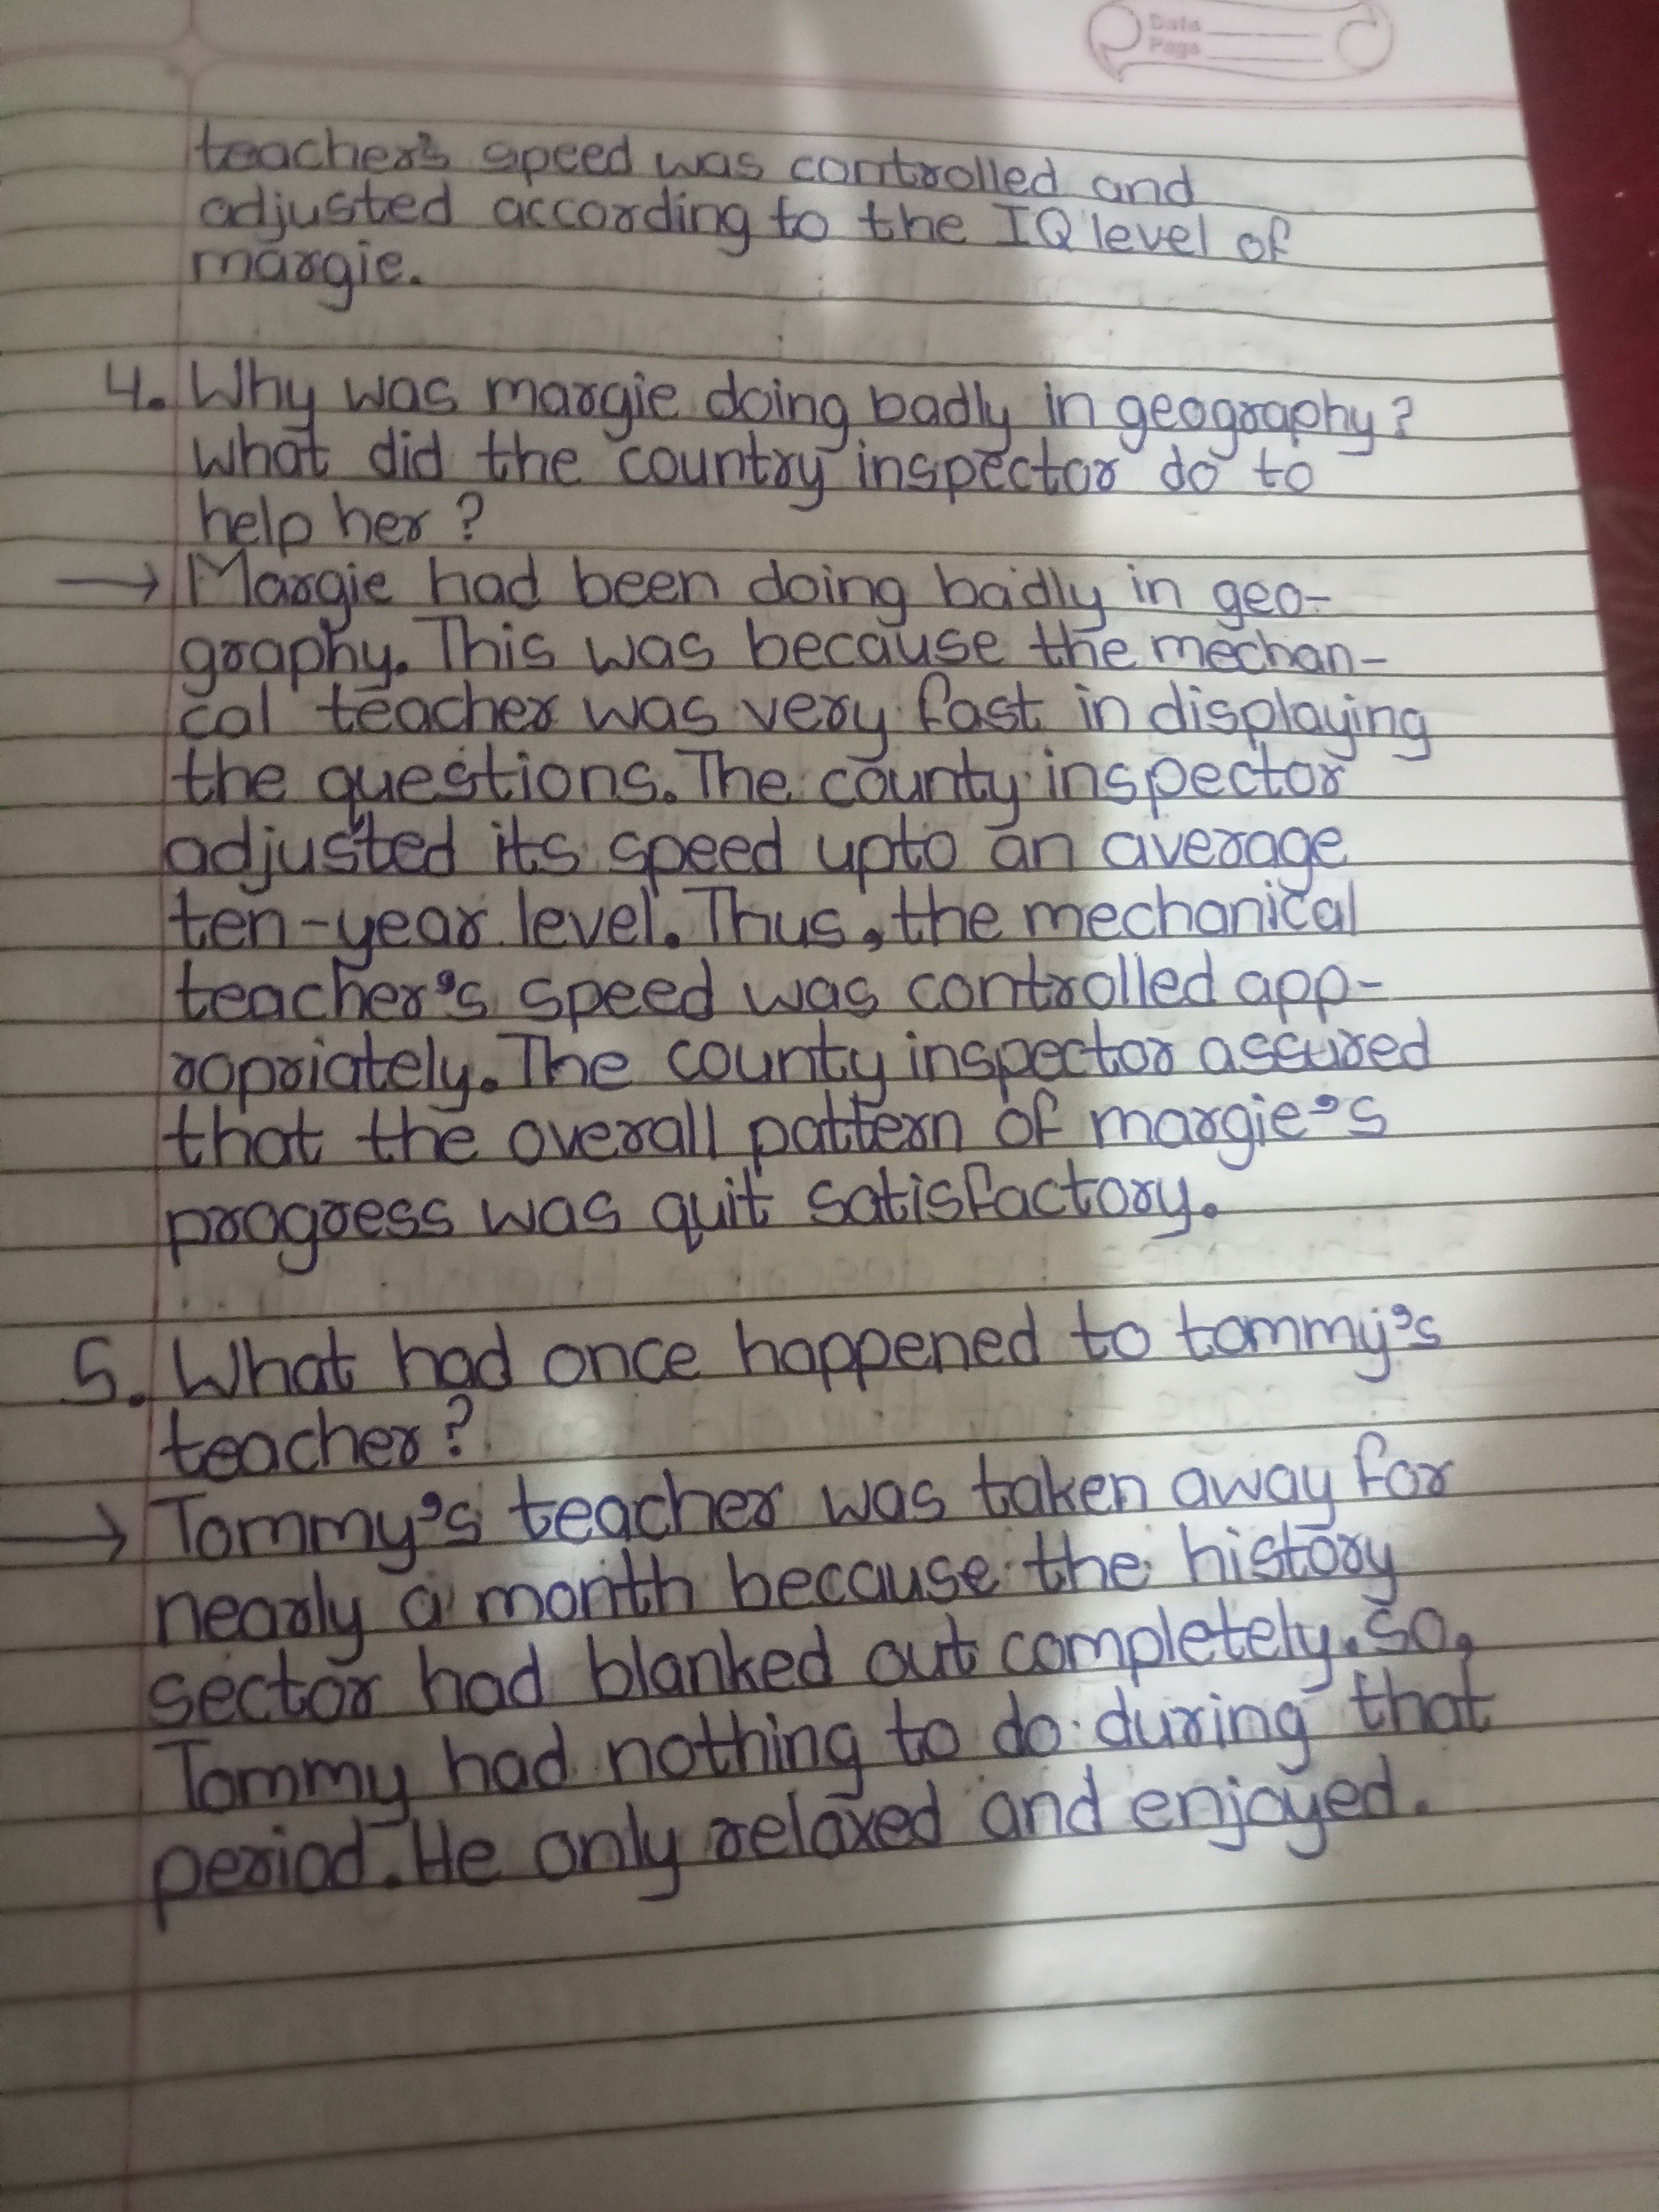 Date
Page
teacher's speed was controlled and
adjusted according to the IQ level of
margie.
4. Why was margie doing badly in geography?
what did the country inspector do to
help her?
→ Margie had been doing badly in geo-
graphy. This was because the mechan-
cal teacher was very fast in displaying
the questions. The county inspector
adjusted its speed upto an average
ten-year level. Thus, the mechanical
teacher's speed was controlled app-
ropriately. The county inspector assured
that the overall pattern of margie's
progress was quit satisfactory.
5. What had once happened to tommy's
teacher?
→ Tommy's teacher was taken away for
nearly a month because the history
sector had blanked out completely. So,
Tommy had nothing to do during that
period. He only relaxed and enjoyed.